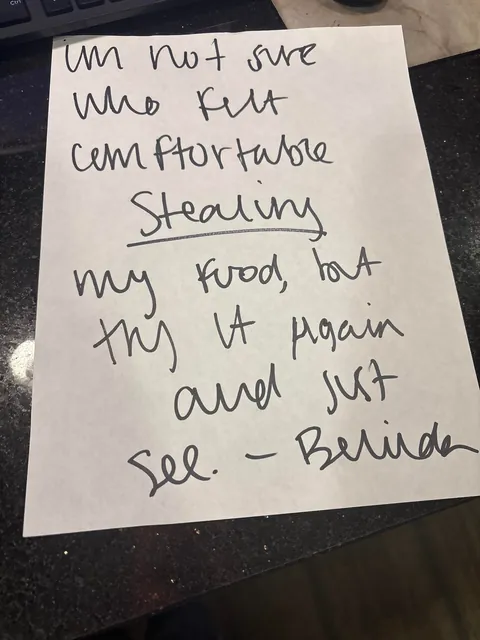 im not sure
who felt
comftortable
Stealing
my food, but
try it Again
and just
See. – Belinda